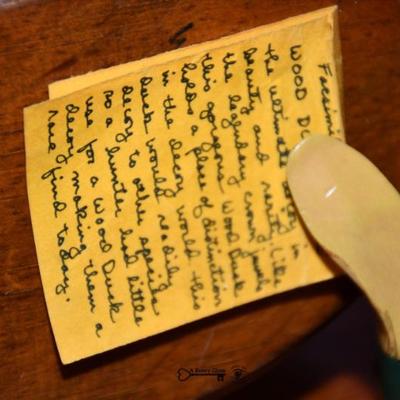 WOOD
the ultimate in
beauty and rarity. Like
the legendary crown jewels
this gorgeous Wood Duck
holds a place of distinction
in the decoy world this
duck would readily
decoy to other species
so a hunter had little
use for a Wood Duck
decoy making them a
rare find today.